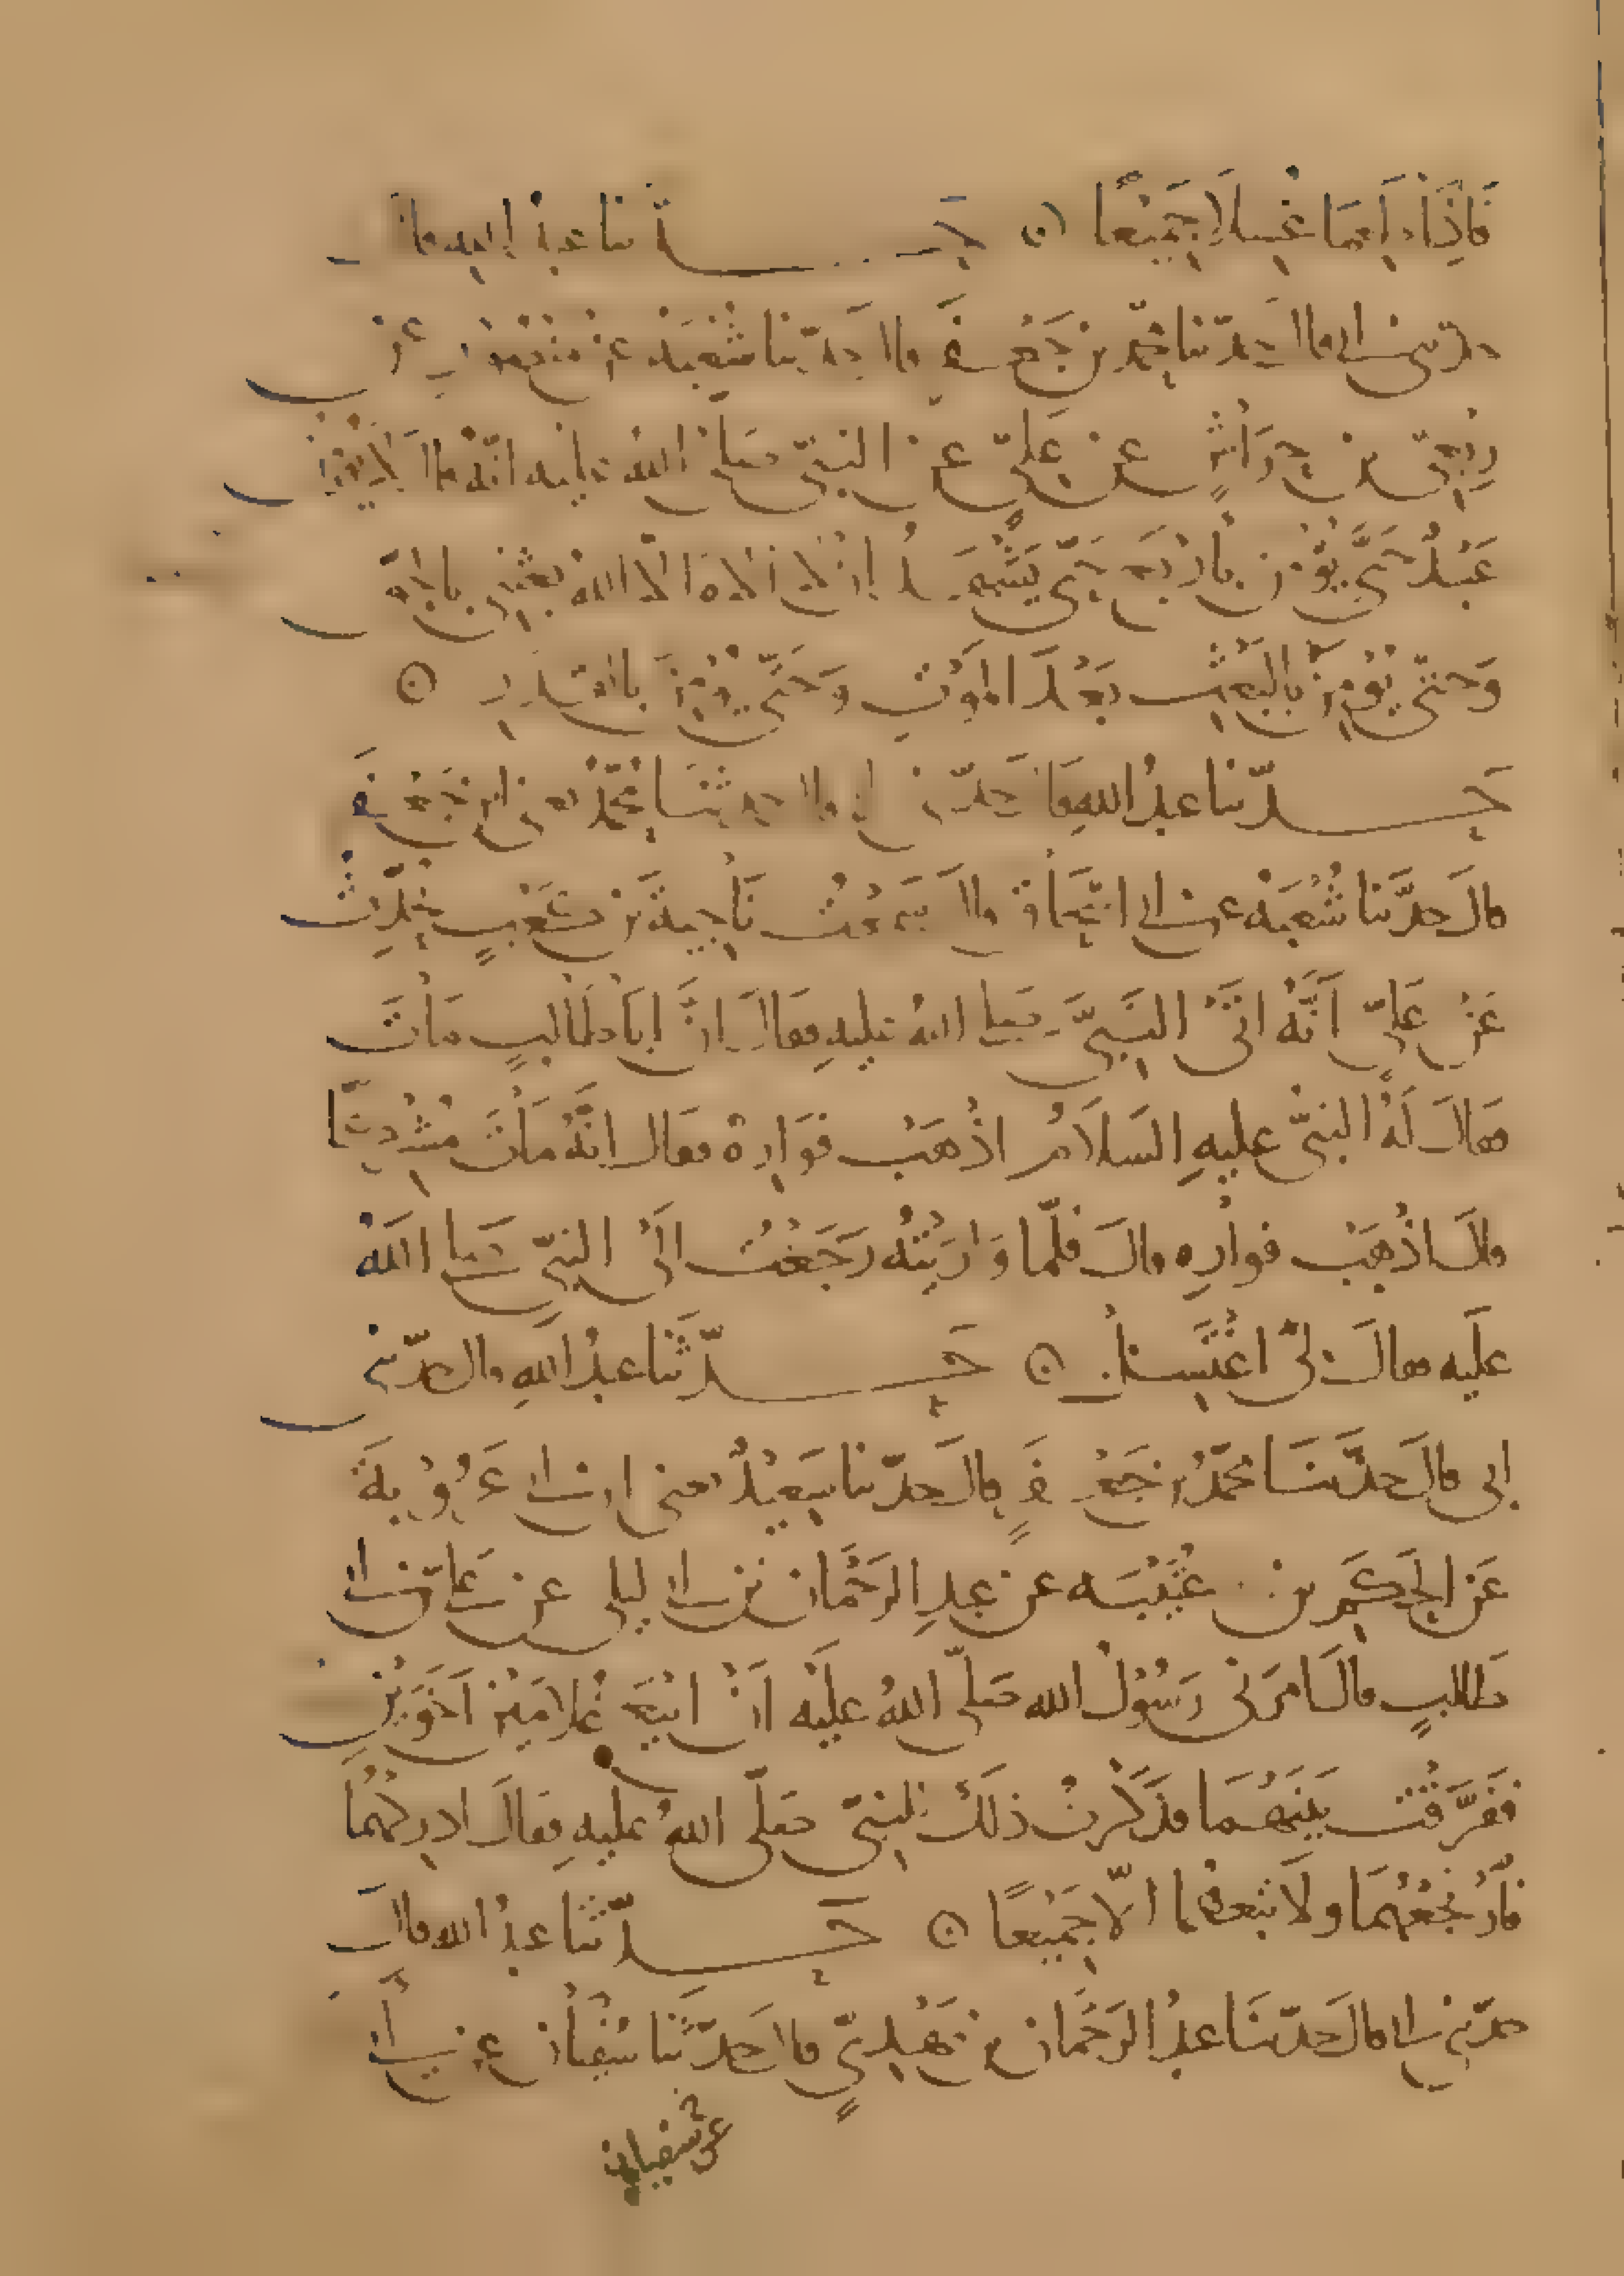 فَإِذَا دَامَا غَسلَا جَمِيْعًا ۞ حَــدّثنا عبدُ اللهِ قالَ
حدثني ابي قال حدّثنا محمّد بن جَعْفَر قال حدّثنا شُعْبَة عن مَنْصُورٍ عن
رِبْعيّ بن حِرَاشٍ عن عَليّ عن النبيّ صلى اللهُ عليه انّهُ قال لا يُؤْمِن
عَبْدٌ حَتَّى يُؤْمن بأرْبَعٍ حَتّى يَشْهَدُ أن لا اله الا اللهُ بعثني بالحق
وَحتى يُؤْمِنَ بالبَعْثِ بَعْدَ المَوْتِ وَحَتَّى يُؤْمنَ بالقَدَرِ ۞
حَــدّثنا عبدُ اللهِ قال حَدّثني ابي قال حدثَنَا محمّدُ بن جَعْفَر
قالَ حدَّثنا شُعْبَة عن ابي اسْحَاق قالَ سَمِعْتُ نَاجِيةَ بن كَعْبٍ يُحدِّث
عَنْ عَليّ أنَّهُ اتَى النَبِيَّ صَلى اللهُ عليهِ فقالَ انَّ ابَا طَالبٍ مَاتَ
فقالَ لَهُ النبيُّ عليهِ السَلاَمُ اذْهَبْ فوَارِهْ فقال انَّهُ مَاتَ مُشْرِكًا
قالَ اذْهَبْ فوارِه قالَ فلمّا وَارَيْتُهُ رَجَعْتُ الَى النبيّ صَلى اللهُ
عَليه فقالَ لي اغْتَسِلْ ۞ حَــدّثَنا عبدُ اللهِ قال حدّثني
ابي قالَ حدَّثنَا محمّدُ بن جَعْفَرٍ قالَ حدّثنا سَعِيْدٌ يعني ابن ابي عَرُوْبةَ
عَن الحَكَمِ بن عُتَيْبَه عن عبدِ الرَحْمَان بن ابي ليلى عن عَليّ بن ابي
طَالبٍ قالَ امَرَني رَسُوْلُ الله صَلّى اللهُ عليْه أنْ ابيْعَ غُلامَيْن أخَوَيْنِ
فَفَرَّقْتُ بَيْنَهُمَا فذَكَرْتُ ذلكَ للنبيّ صَلّى اللهُ عليهِ فقالَ ادرِكْهُمَا
فأرْجعْهُمَا ولَا تبعهُما الّا جَمِيْعًا ۞ حَــدّثنا عبدُ الله قالَ
حدّثني ابي قالَ حدّثنَا عبدُ الرَحْمَان بن مَهْدِيٍّ قالَ حدّثنا سُفْيَان عن أبي
عن سفيان